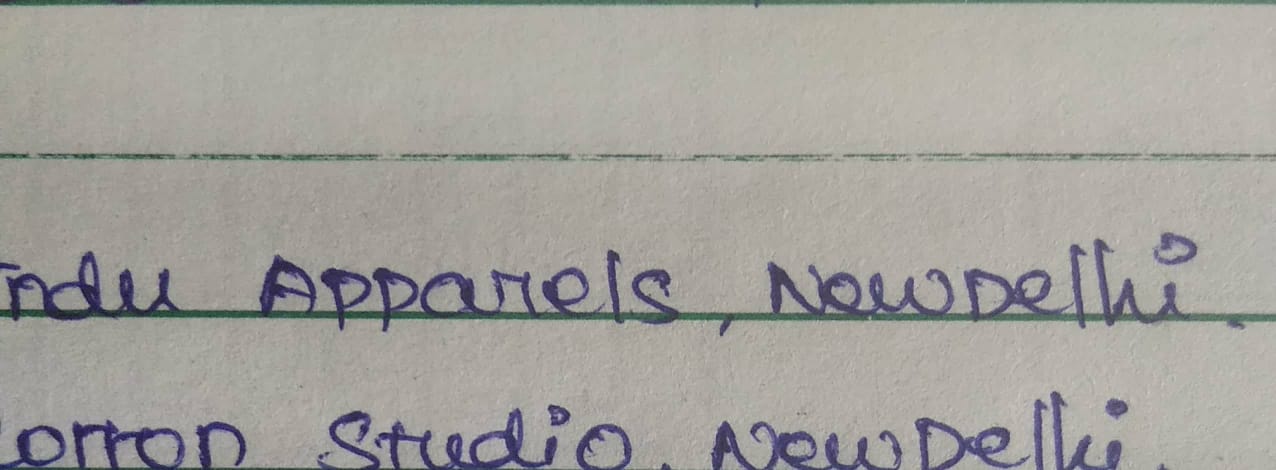 Indu Apparels, NewDelhi.
Cotton Studio, NewDelhi.